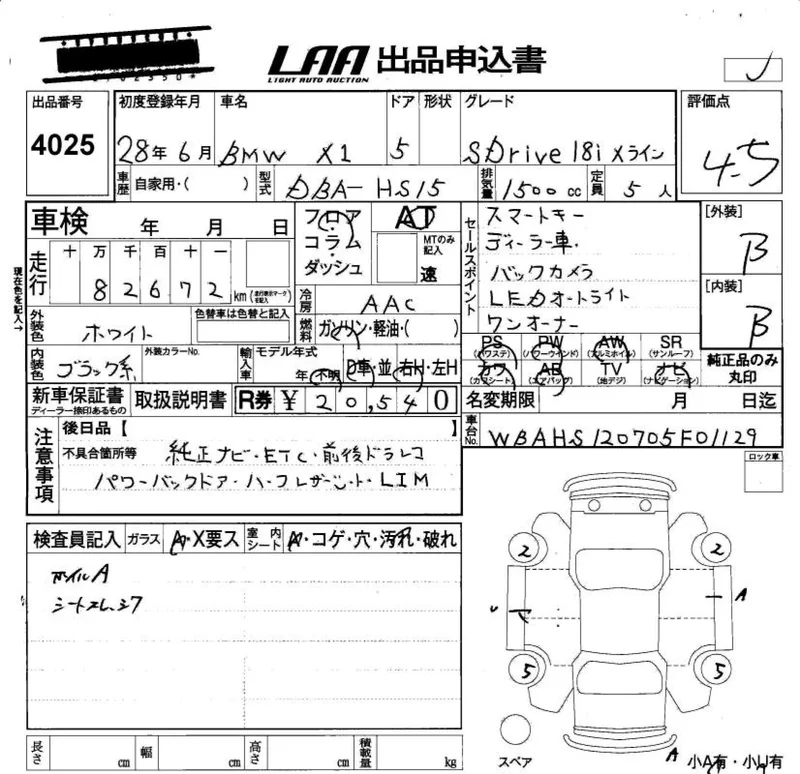 LAA 出品申込書
LIGHT AUTO AUCTION
出品番号 初度登録年月 車名 ドア 形状 グレード 評価点
4025 28年6月 BMW X1 5 SDrive 18i Xライン 4.5
車歴 自家用・( ) 型式 DBA-HS15 排気量 1500 cc 定員 5 人
車検 年 月 日 フロア・コラム・ダッシュ AT セールスポイント スマートキー [外装]
MTのみ記入 速 ディーラー車 B
走行 十 万 千 百 十 一 バックカメラ
8 2 6 7 2 km (走行表示マークを記入) 冷房 AAC LEDオートライト [内装]
現在色を記入→
外装色 ホワイト 色替車は色替と記入 燃料 ガソリン・軽油・( ) ワンオーナー B
PS (パワステ) PW (パワーウインド) AW (アルミホイル) SR (サンルーフ)
内装色 ブラック系 外装カラーNo. 輸入車 モデル年式 年(不明) D車・並 右H・左H カワ (カワシート) AB (エアバッグ) TV (地デジ) ナビ (ナビゲーション) 純正品のみ丸印
新車保証書 ディーラー捺印あるもの 取扱説明書 R券 ¥ 20,540 名変期限 月 日迄
車台No. WBAHS120705F01129
注意事項 後日品【 】
不具合箇所等 純正ナビ・ETC・前後ドラレコ ロック車
パワーバックドア・ハーフレザーシート・LIM
検査員記入 ガラス A・X要ス 室内シート A・コゲ・穴・汚れ・破れ
ホイルA
シートスレ、シワ
2 2
A
5 5
A
スペア 小A有・小U有
長さ cm 幅 cm 高さ cm 積載量 kg